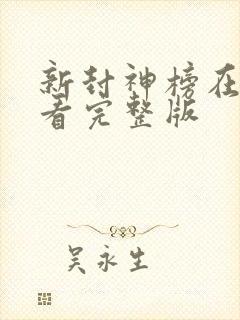 新封神榜在
看完整版
吴永生